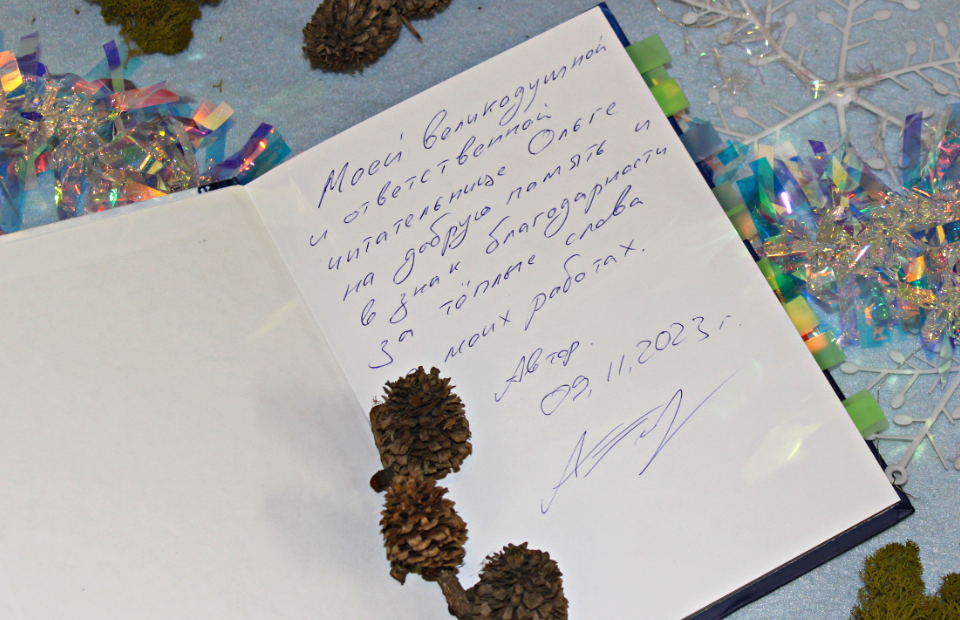 Моей великодушной
и ответственной
читательнице Ольге
на добрую память и
в знак благодарности
за тёплые слова
моих работах.
Автор.
09.11.2023 г.